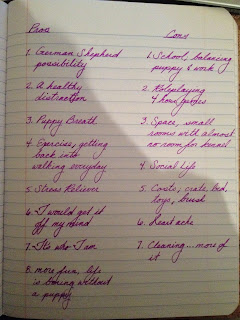 Pros
1. German Shepherd
possibility
2. A healthy
distraction
3. Puppy Breath
4. Exercise, getting
back into
walking everyday
5. Stress Reliever
6. I would get it
off my mind
7. It's who I am
8. more fun, life
is boring without
a puppy
Cons
1. School, balancing
puppy & work
2. Roleplaying
4 hours
3. Space, small
rooms with almost
no room for kennel
4. Social life
5. Costs, crate, bed,
toys, brush
6. Heartache
7. Cleaning... more of
it